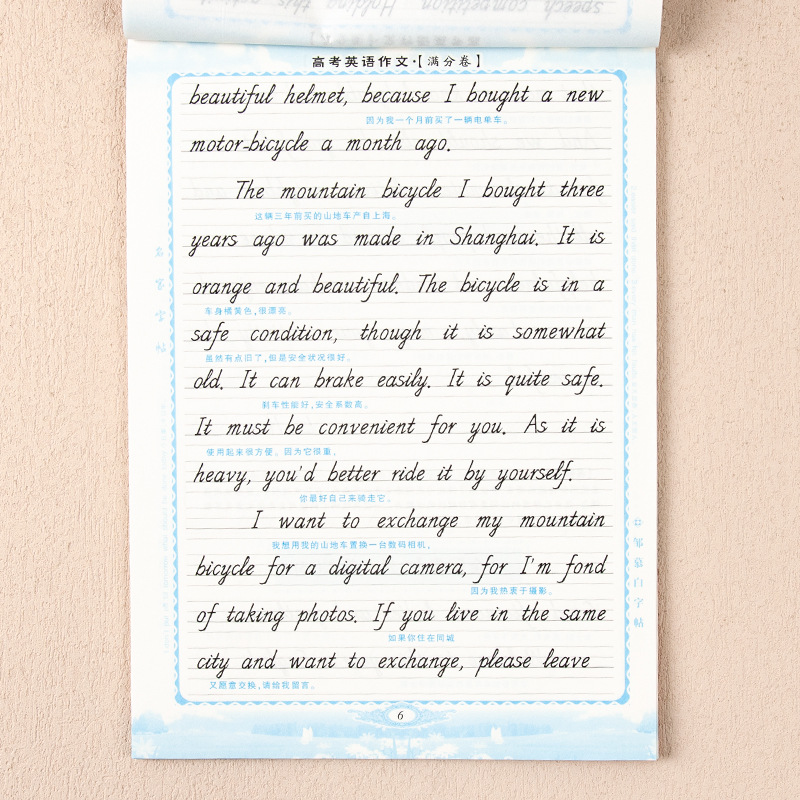 speech competition Holding this activity
高考英语作文·【满分卷】
beautiful helmet, because I bought a new
因为我一个月前买了一辆电单车。
motor-bicycle a month ago.
The mountain bicycle I bought three
这辆三年前买的山地车产自上海。
years ago was made in Shanghai. It is
orange and beautiful. The bicycle is in a
车身橘黄色,很漂亮。
safe condition, though it is somewhat
虽然有点旧了,但是安全状况很好。
old. It can brake easily. It is quite safe.
刹车性能好,安全系数高。
It must be convenient for you. As it is
使用起来很方便。因为它很重,
heavy, you'd better ride it by yourself.
你最好自己来骑走它。
I want to exchange my mountain
我想用我的山地车置换一台数码相机,
bicycle for a digital camera, for I'm fond
因为我热衷于摄影。
of taking photos. If you live in the same
如果你住在同城
city and want to exchange, please leave
又愿意交换,请给我留言。
名家字帖
邹慕白字帖
6